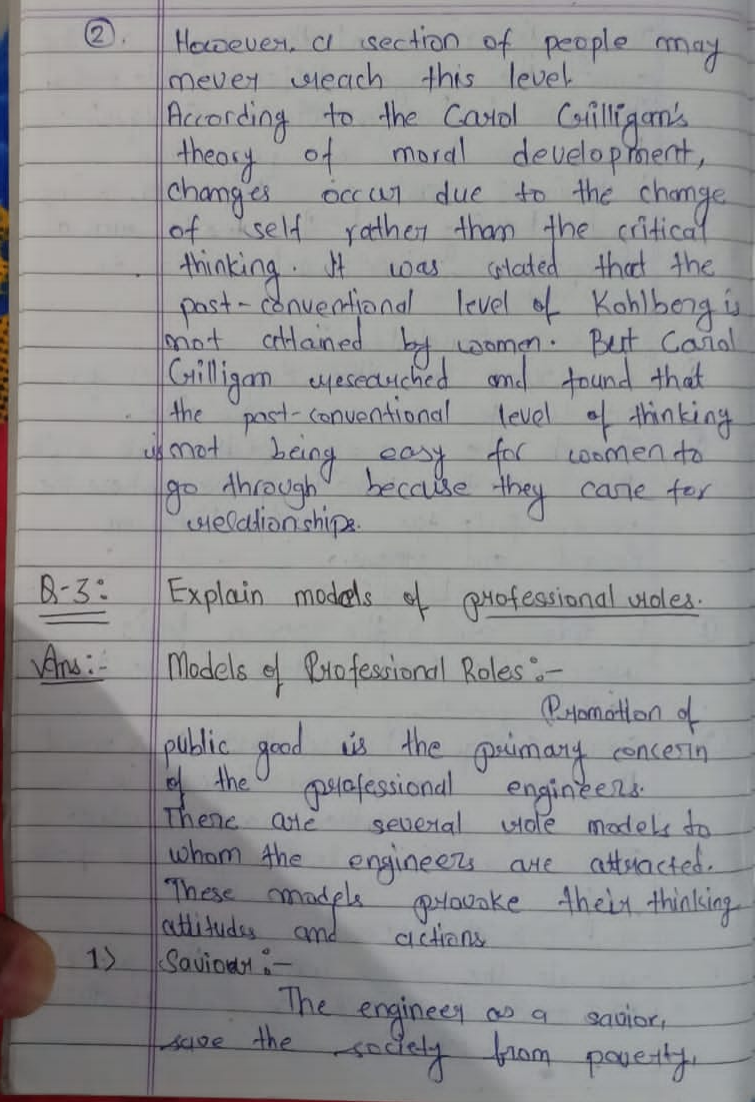 ②. However, a section of people may
never reach this level.
According to the Carol Gilligan's
theory of moral development,
changes occur due to the change
of self rather than the critical
thinking. It was stated that the
post-conventional level of Kohlberg is
not attained by women. But Carol
Gilligan researched and found that
the post-conventional level of thinking
is not being easy for women to
go through because they care for
relationships.
Q-3: Explain models of professional roles.
Ans:- Models of Professional Roles:-
Promotion of
public good is the primary concern
of the professional engineers.
There are several role models to
whom the engineers are attracted.
These models provoke their thinking
attitudes and actions
1) Saviour:-
The engineer as a savior,
save the society from poverty,